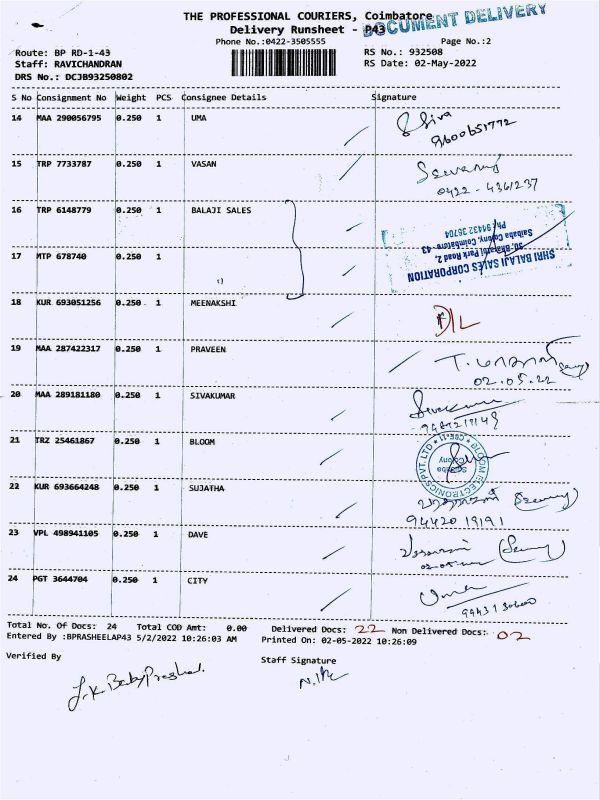 THE PROFESSIONAL COURIERS, Coimbatore
DOCUMENT DELIVERY
Delivery Runsheet - P43
Phone No.:0422-3505555 Page No.:2
Route: BP RD-1-43 RS No.: 932508
Staff: RAVICHANDRAN RS Date: 02-May-2022
DRS No.: DCJB93250802
S No Consignment No Weight PCS Consignee Details Signature
14 MAA 290056795 0.250 1 UMA Shiva
9600651772
15 TRP 7733787 0.250 1 VASAN
0422-4361237
16 TRP 6148779 0.250 1 BALAJI SALES
17 MTP 678740 0.250 1
SHRI BALAJI SALES CORPORATION
50, Bharathi Park Road 2,
Saibaba Colony, Coimbatore - 43
Ph: 94432 36704
18 KUR 693051256 0.250 1 MEENAKSHI D/L
19 MAA 287422317 0.250 1 PRAVEEN
02.05.22
20 MAA 289181180 0.250 1 SIVAKUMAR Sivakumar
21 TRZ 25461867 0.250 1 BLOOM
BLOOM ELECTRONICS PVT. LTD
Saibaba
Colony
CBE-11
22 KUR 693664248 0.250 1 SUJATHA
94420 19191
23 VPL 498941105 0.250 1 DAVE
24 PGT 3644704 0.250 1 CITY Uma
Total No. Of Docs: 24 Total COD Amt: 0.00 Delivered Docs: 22 Non Delivered Docs: 02
Entered By :BPRASHEELAP43 5/2/2022 10:26:03 AM Printed On: 02-05-2022 10:26:09
Verified By Staff Signature